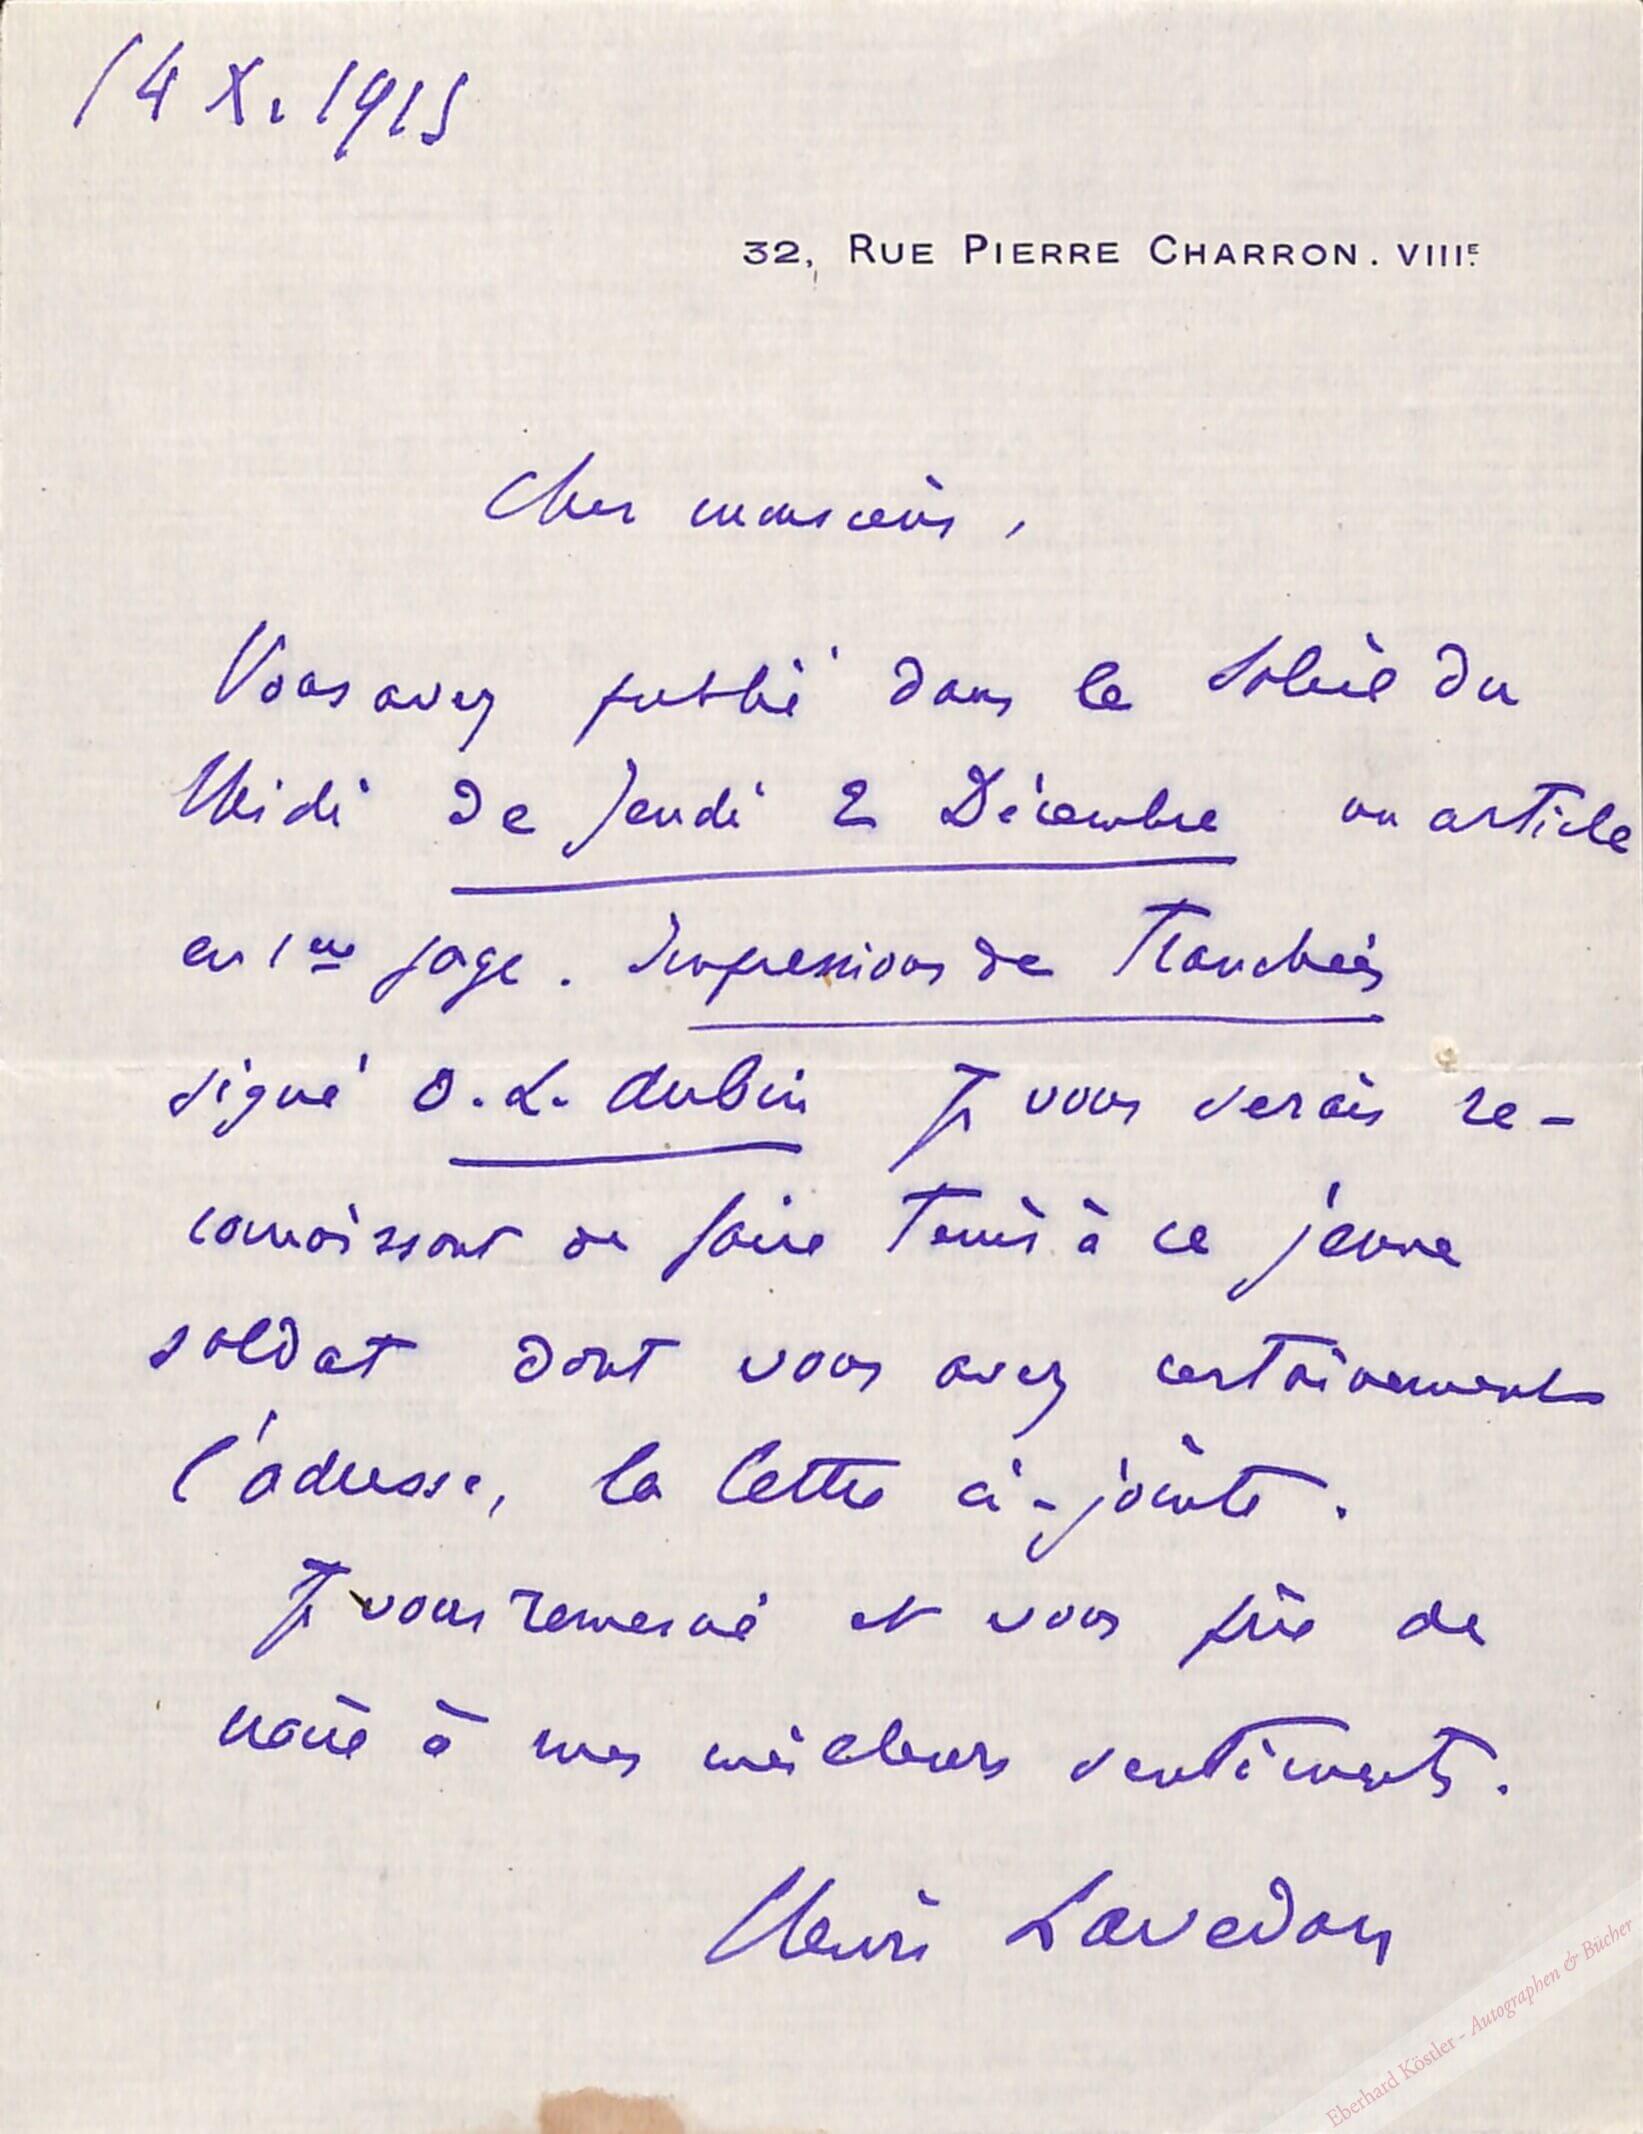 14 X. 1915
32, RUE PIERRE CHARRON. VIIIE.
Cher monsieur,
Vous avez publié dans le Soleil du
Midi de Jeudi 2 Décembre un article
en 1ere page. Impressions de Tranchées
signé O. L. Aubin Je vous serais re-
connaissant de faire tenir à ce jeune
soldat dont vous avez certainement
l'adresse, la lettre ci-jointe.
Je vous remercie et vous prie de
croire à mes meilleurs sentiments.
Henri Lavedan
Eberhard Köstler - Autographen & Bücher